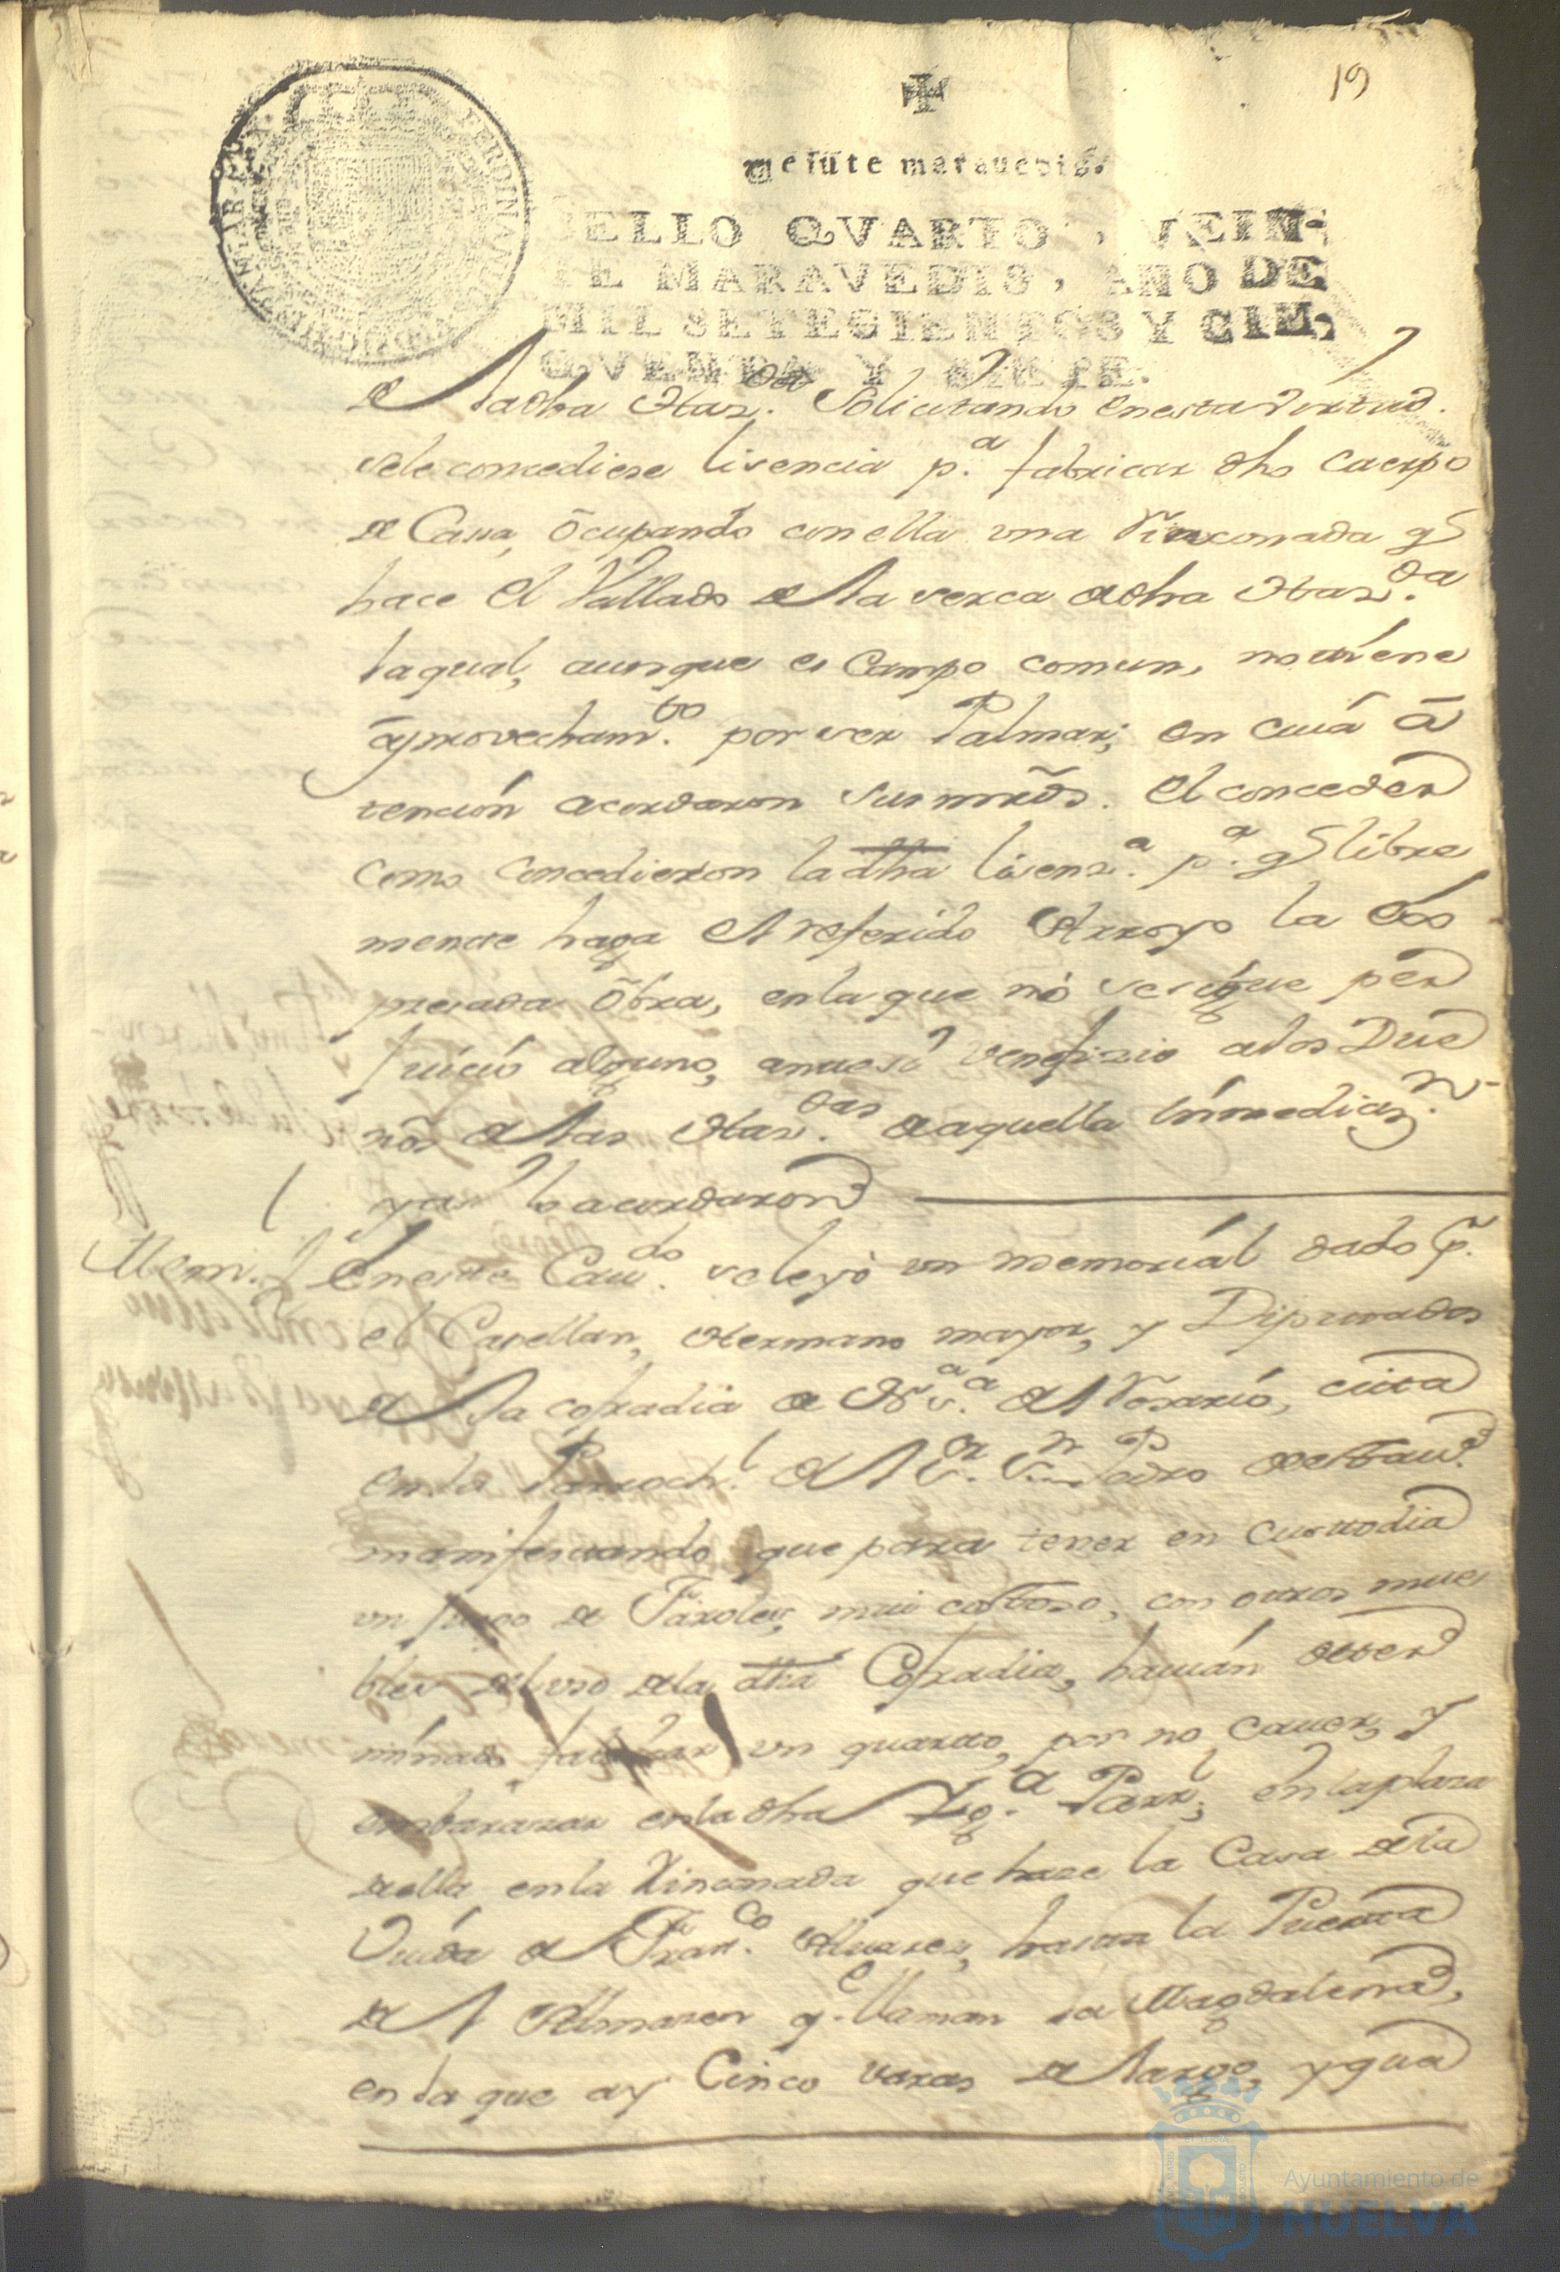 19
Veiute maravedis.
SELLO QVARTO, VEIN-
TE MARAVEDIS, AÑO DE
MIL SETECIENTOS Y CIN-
QVENTA Y SIETE.
de la dha Haz.da Solicitando en esta virtud
se le concediese lisencia p.a fabricar dho Cuerpo
de Casa, ocupando con ella una Rinconada q
hace el Vallado de la serca de dha Haz.da
la qual, aunque es Campo comun, no tiene
aprovecham.to por ser Palmar, en cuia a
tencion acordaron sus mrds. el conceder
como concedieron la dha lisenz.a p.a q libre
mente haga el referido Arroyo la es
presada obra, en la que no se sigue per
juicio alguno, antes si venefizio a los Due
ños de las Haz.das de aquella inmediaz.n
y asi lo acordaron
Mem.l En este Cav.do se leyò un memorial dado p.r
el Capellan, Hermano mayor, y Diputados
de la cofradia de N.a S.a del Rosario, cita
en la Parroch.l del S.or S.n Pedro de esta v.a
manifestando que para tener en custodia
un juego de Faroles, mui costoso, con otros mue
bles del uso de la dha Cofradia, havian deter
minado fabricar un quarto, por no caver, y
embarazar en la dha Yg.a Parr.l, en la plaza
de ella en la Rinconada que haze la Casa de la
Viuda de Fran.co Alvarez, hasta la Puerta
del Almazen q.e llaman la Magdalena,
en la que ay Cinco varas de largo, y qua
Ayuntamiento de
HUELVA